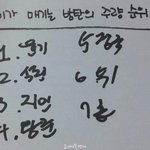 이가 매기는 방탄의 주량 순위
1. 윤기 5 정국
2. 석진 6 뷔
3. 지민 7 홉
4. 남준